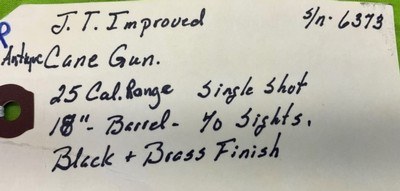 J.T. Improved S/n. 6373
Antique Cane Gun.
25 Cal. Range Single Shot
18" - Barrel - No Sights.
Black + Brass Finish